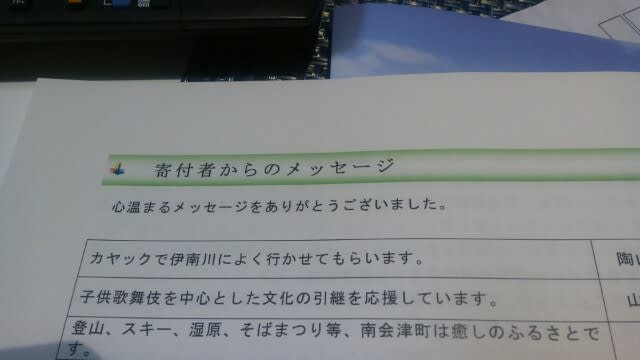 寄付者からのメッセージ
心温まるメッセージをありがとうございました。
カヤックで伊南川によく行かせてもらいます。
陶山
子供歌舞伎を中心とした文化の引継を応援しています。
登山、スキー、湿原、そばまつり等、南会津町は癒しのふるさとで
す。